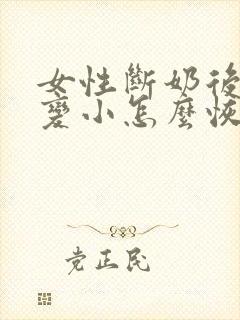 女性斷奶後
變小怎麼恢
党正民